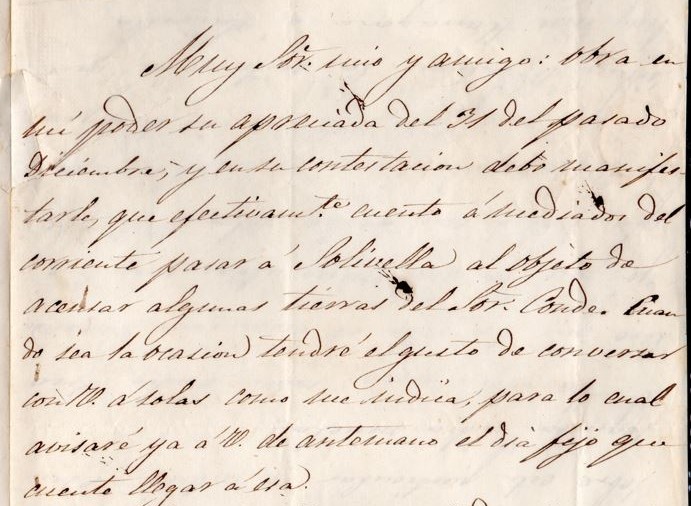 Muy Sor. mio y amigo: obra en
mi poder su apreciada del 31 del pasado
Diciembre, y en su contestacion debo manifes-
tarle, que efectivamte. cuento á mediados del
corriente pasar á Solivella al objeto de
acensar algunas tierras del Sor. Conde. Cuan
do sea la ocasion tendré el gusto de conversar
con V. á solas como me indica, para lo cual
avisaré ya á V. de antemano el dia fijo que
cuente llegar á esa.